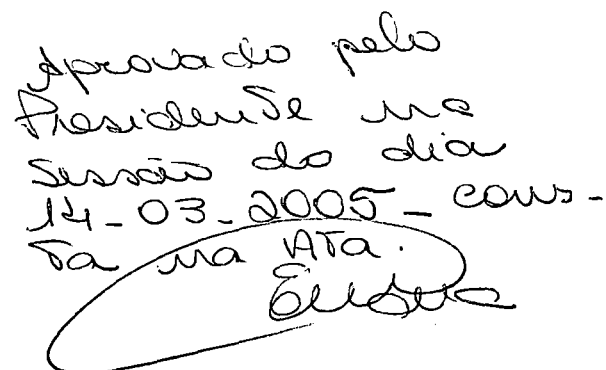 Aprovado pelo
Presidente na
Sessão do dia
14-03-2005 - cons-
ta na Ata.